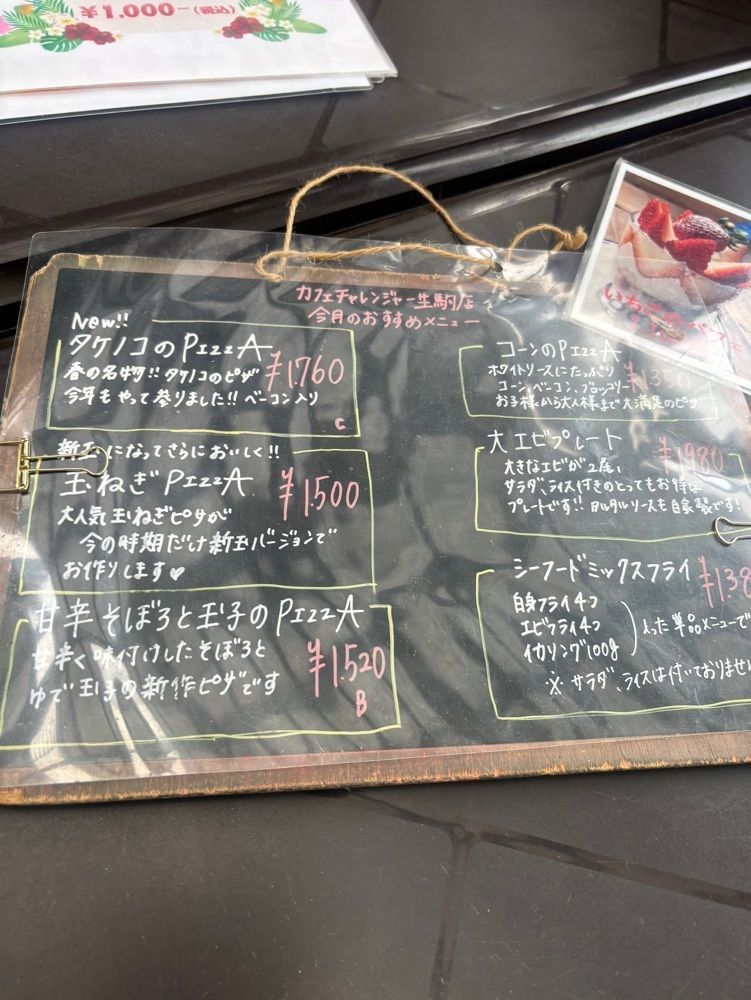 ¥1,000-(税込)
カフェチャレンジャー生駒店
今月のおすすめメニュー
New!!
タケノコのPIZZA
¥1.760
春の名物!! タケノコのピザ
今年もやって参りました!! ベーコン入り
C
新玉になってさらにおいしく!!
玉ねぎPIZZA
¥1.500
大人気玉ねぎピザが
今の時期だけ新玉バージョンで
お作りします♥
甘辛そぼろと玉子のPIZZA
甘辛く味付けしたそぼろと
¥1.520
ゆで玉子の新作ピザです
B
コーンのPIZZA
¥1350
ホワイトソースにたっぷり
コーン、ベーコン、ブロッコリー
お子様から大人様まで大満足のピザ
大エビプレート
¥1980
大きなエビが2尾、
サラダ、ライス付きのとってもお得な
プレートです!! タルタルソースも自家製です!
シーフードミックスフライ
¥138
白身フライ4つ
エビフライ4つ
イカリング100g
入った単品メニューで
※ サラダ、ライスは付いておりませ
いちごのパフェ